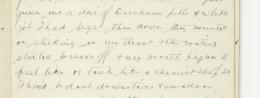 given me a dose of Beechams pills & what a
job I had to get them down they insisted
on sticking in my throat & the coating
started to wear off & my mouth began to
feel like or taste like a chemist shop so
I had to dash downstairs & swallow